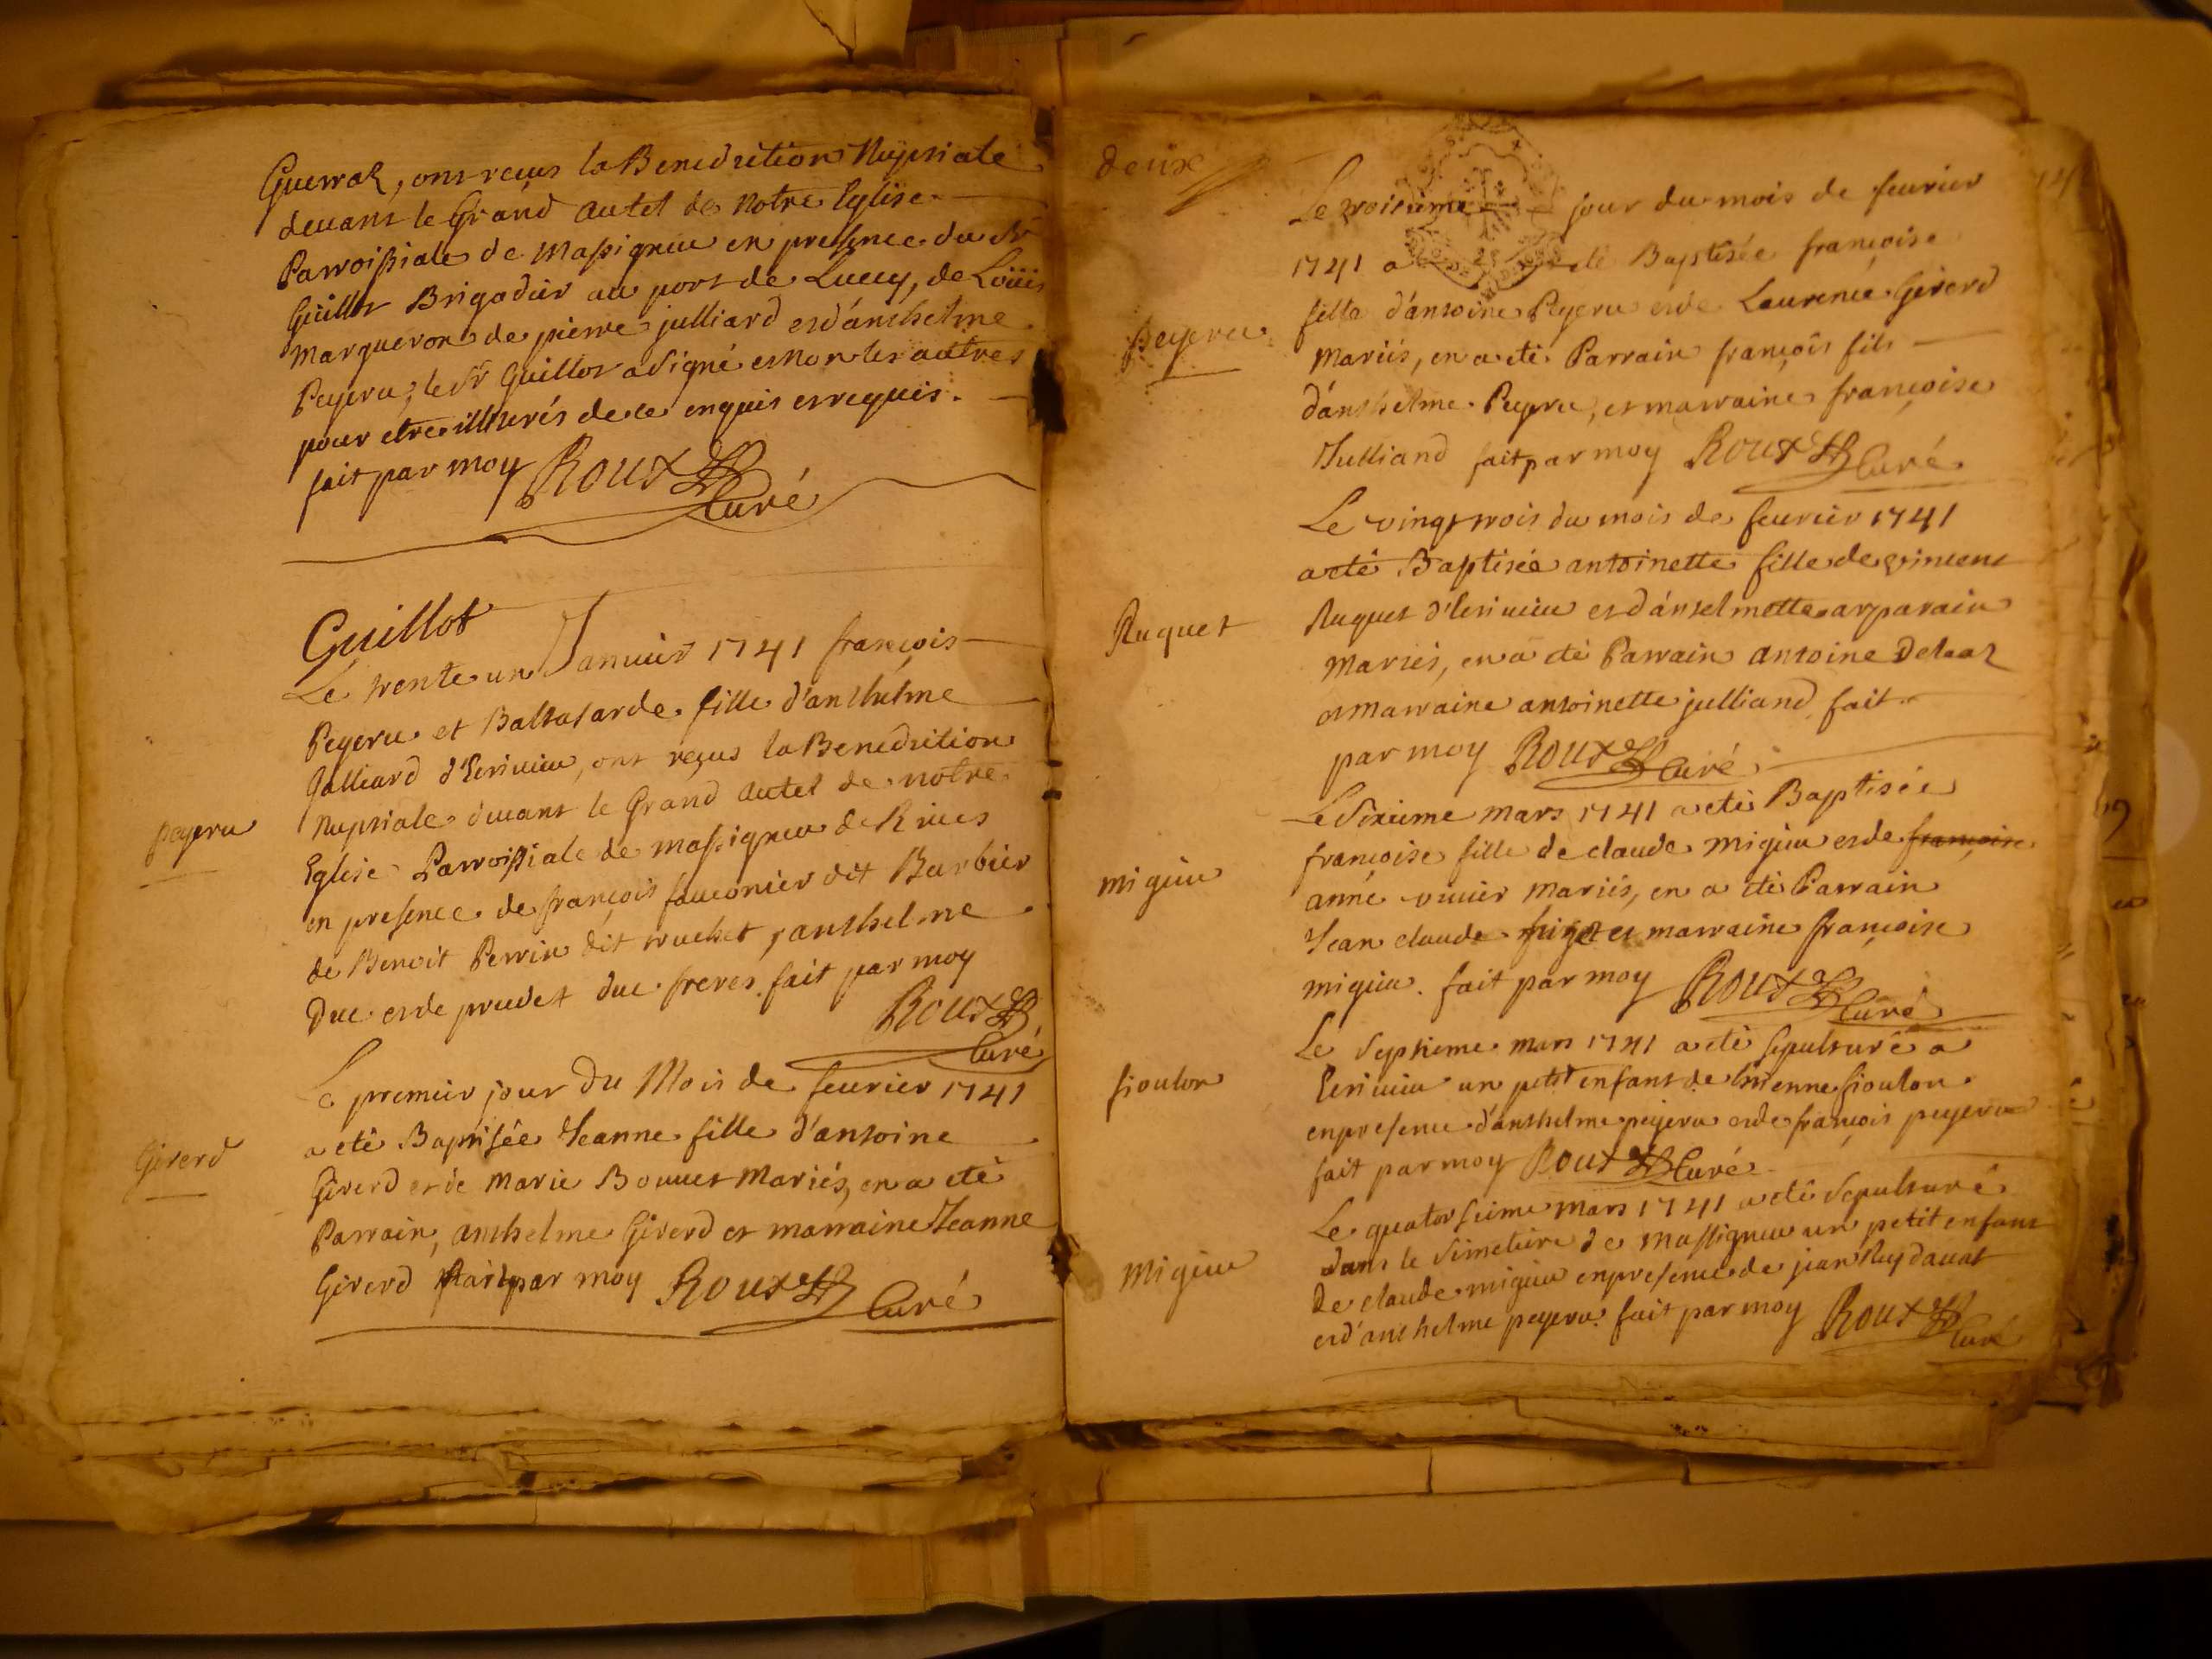 Guerraz, ont reçus la Benediction Nuptiale
devant le Grand Autel de Notre Eglise
Parroissiale de Massignieu en presence du Sr
Guillot Brigadier au port de Lucey, de Loüis
Margueron de pierre julliard et d'anthelme
Peyeru, le Sr Guillot a Signé et Non les autres
pour etre illiterés de ce enquis et requis.
fait par moy Roux
Curé
Guillot
Le trente un Janvier 1741 françois
peyeru
Peyeru et Baltasarde fille d'anthelme
Julliard d'Ecrivieu, ont reçus la Benediction
Nuptiale devant le Grand Autel de notre
Eglise Parroissiale de massignieu de Rives
en presence de françois fauconier dit Barbier
de Benoit Perrin dit truchet, anthelme
Duc et de prudet duc freres. fait par moy
Roux
Curé
Le premier jour Du Mois de fevrier 1741
Girerd
a eté Baptisée Jeanne fille d'antoine
Girerd et de Marie Bouvet Mariés, en a eté
Parrain, anthelme Girerd et marraine Jeanne
Girerd fait par moy Roux Curé
deux
Le troisieme jour du mois de fevrier
1741 a eté Baptisée françoise
Peyeru
fille d'antoine Peyeru et de Laurence Girerd
Mariés, en a eté Parrain françois fils
d'anthelme Peyeru, et marraine françoise
Julliand fait par moy Roux Curé
Le vingt trois du mois de fevrier 1741
a eté Baptisée antoinette fille de vincent
Ruquet
Ruquet d'Ecrivieu et d'anselmette
Mariés, en a eté Parrain antoine Delaz
et Marraine antoinette julliand fait
par moy Roux Curé
Le Sixieme mars 1741 a eté Baptisée
migieu
françoise fille de claude migieu et de françoise
anne vivier Mariés, en a eté Parrain
Jean claude et marraine françoise
migieu. fait par moy Roux Curé
Le Septieme mars 1741 a eté sepulturé a
fioulon
Ecrivieu un petit enfant de fioulon
en presence d'anthelme peyeru et de françois peyeru
fait par moy Roux Curé
Le quatorsieme mars 1741 a eté Sepulturé
Migieu
dans le Simetiere de Massignieu un petit enfant
de claude migieu en presence de jean Ruydavat
et d'anthelme peyeru. fait par moy Roux
Curé